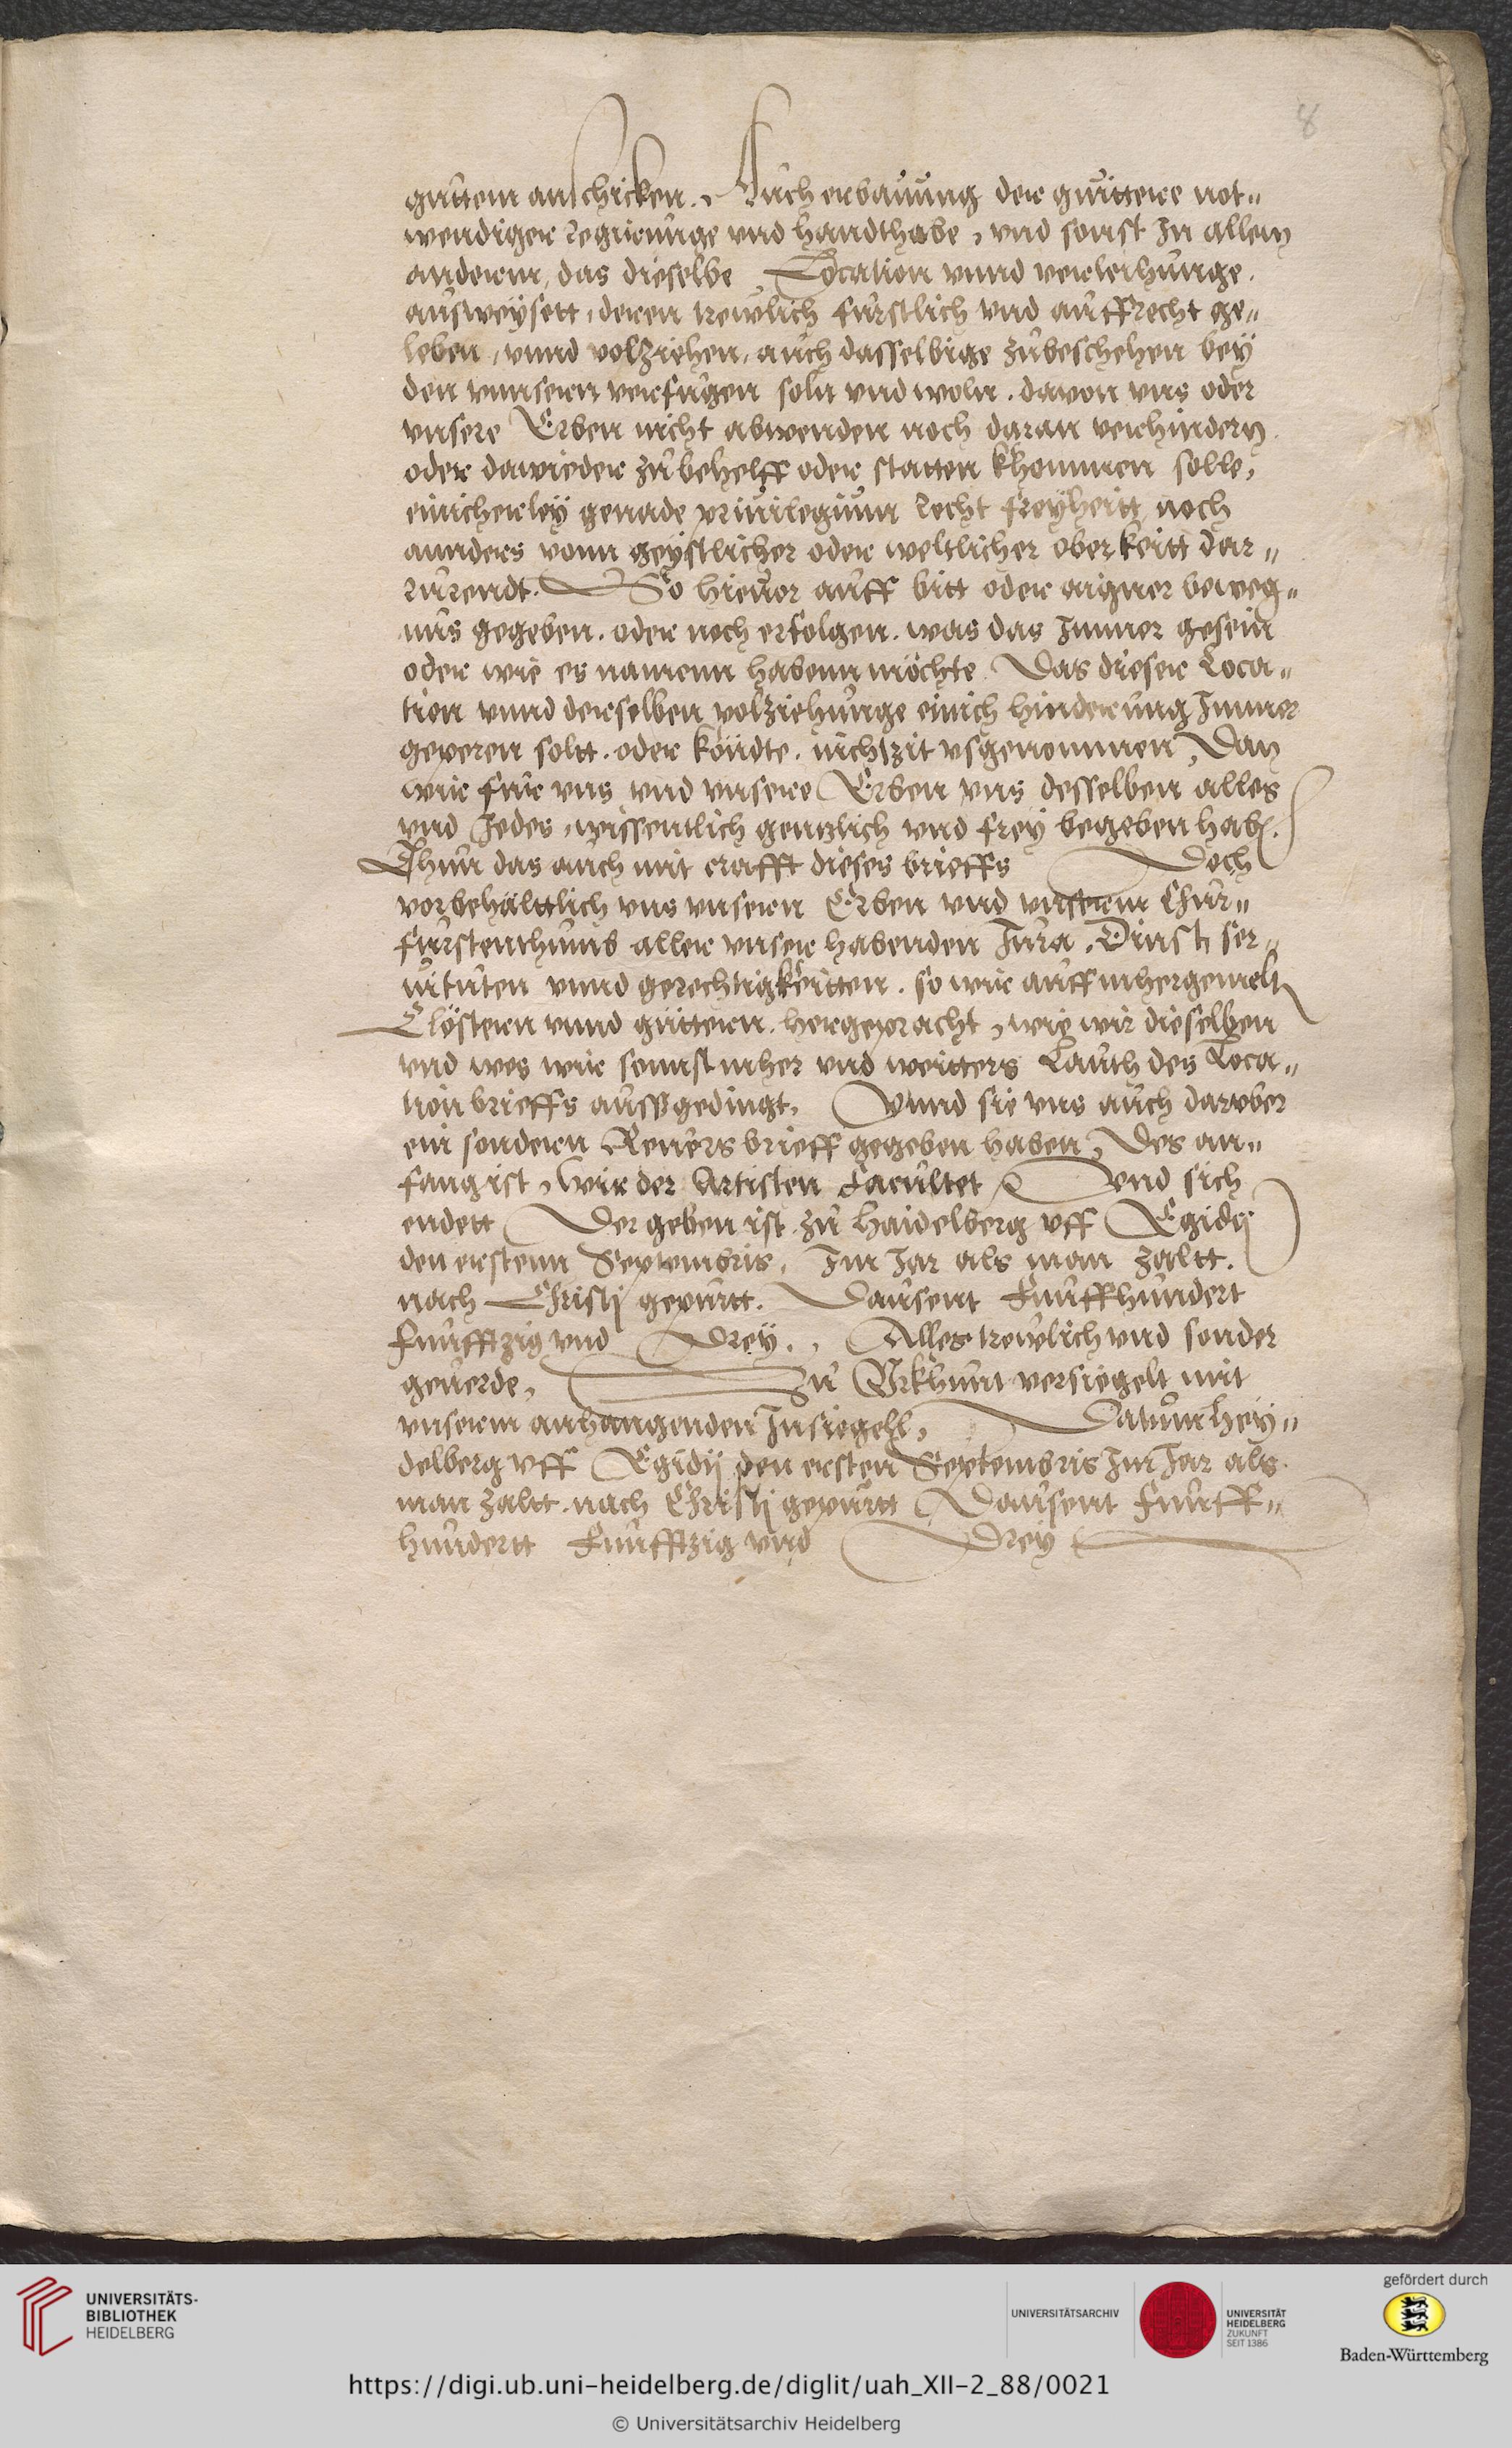 8
guttern anschicken. Auch erbauung der guittere not„
wendiger regirunge vnd handthabe, vnd sonst In allem
anderem, das dieselbe Location vnnd verleihunge.
ausweysett, deren trewlich furstlich vnd auffrecht ge„
leben, vnnd volziehen, auch dasselbige zubeschehen bey
den vnnsern verfugen soln vnd woln. davon vns oder
vnsere Erben nicht abwenden noch daran verhindern
oder dawieder zubehelff oder statten khommen solle,
einicherley genade priuilegium recht freyheitt noch
annders vonn geystlicher oder weltlicher oberkeitt dar„
rurendt. So hieuor auff bitt oder aigner beweg„
nus gegeben. oder noch erfolgen. was das Immer gesein
oder wie es namenn habenn möchte. Das dieser Loca„
tion vnnd derselben volziehunge einich hinderung Immer
geperen soltt. oder köndte. nichtzit vsgenommen, Dan
wir fur vns vnd vnsere Erben vns desselben alles
vnd Jedes, wissentlich gentzlich vnd frey begeben hab.
Thun das auch mit crafft dieses brieffs Doch
vorbehälttlich vns vnsern Erben vnd vnserm Chur„
furstenthumb aller vnser habenden Jura, Dinst, ser„
uituten vnnd gerechtigkeitten. so wir auff mhergemelt
Clöstern vnnd güttern. hergepracht, wie wir dieselben
vnd wes wir sonnst mher vnd weitters Lauth des Loca„
tion brieffs aussgedingt. Vnnd sie vns auch darvber
ein sondern Reuers brieff gegeben haben, Des an„
fang ist, Wir der Artisten Facultet Vnd sich
endett Der geben ist zu Haidelberg vff Egidij
den erstenn Septembris, Im Jar als man zaltt.
nach Christj gepurtt. Dausent Funffhundert
funfftzig vnd Drey. Alles trewlich vnd sonder
geuerde, Zu Vrkhunt versiegelt mit
vnserm anhangenden Insiegell, Datum Hey„
delberg vff Egidij den ersten Septembris Im Jar als
man zaltt. nach Christj gepurtt Dausent Funff„
hundertt Funfftzig vnd Drey
UNIVERSITÄTS-
BIBLIOTHEK
HEIDELBERG
UNIVERSITÄTSARCHIV
UNIVERSITÄT
HEIDELBERG
ZUKUNFT
SEIT 1386
gefördert durch
Baden-Württemberg
https://digi.ub.uni-heidelberg.de/diglit/uah_XII-2_88/0021
© Universitätsarchiv Heidelberg